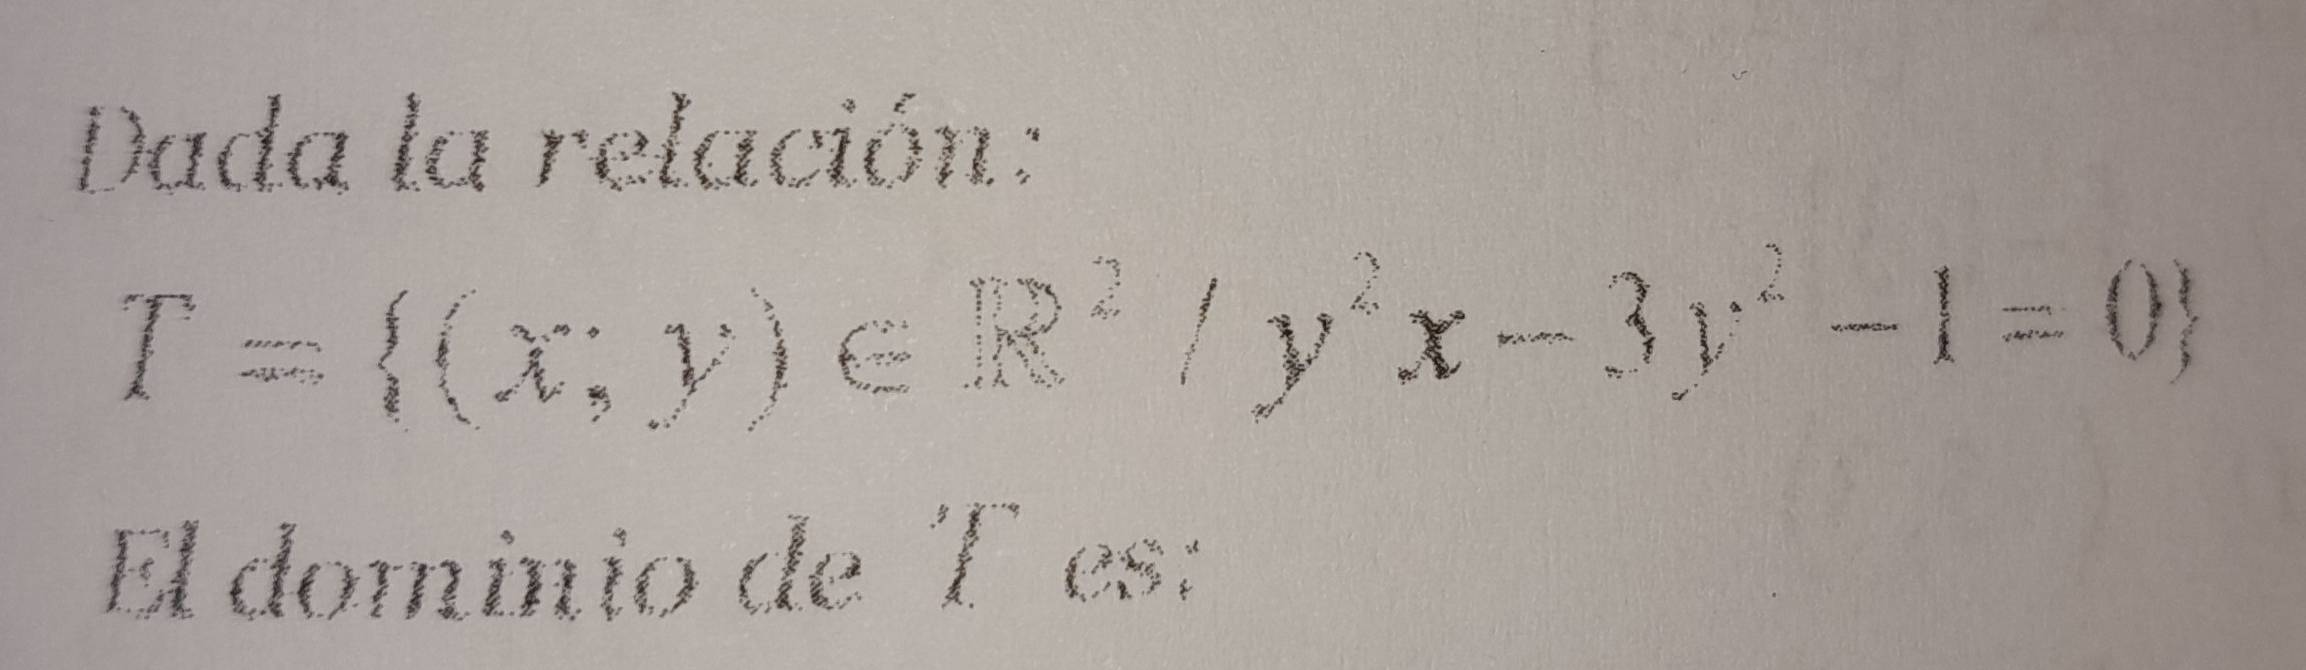 Dada la relación:
T = {(x; y) ∈ ℝ² / y²x − 3y² − 1 = 0}
El dominio de T es: